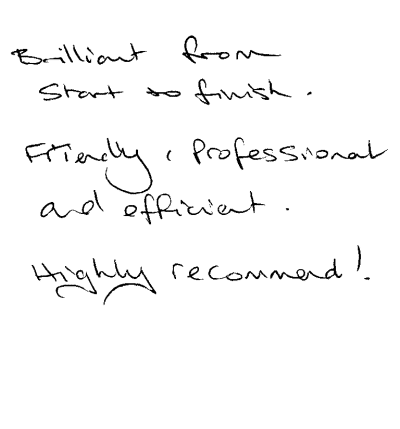 Brilliant from
start to finish.
Friendly, Professional
and efficient.
Highly recommend!